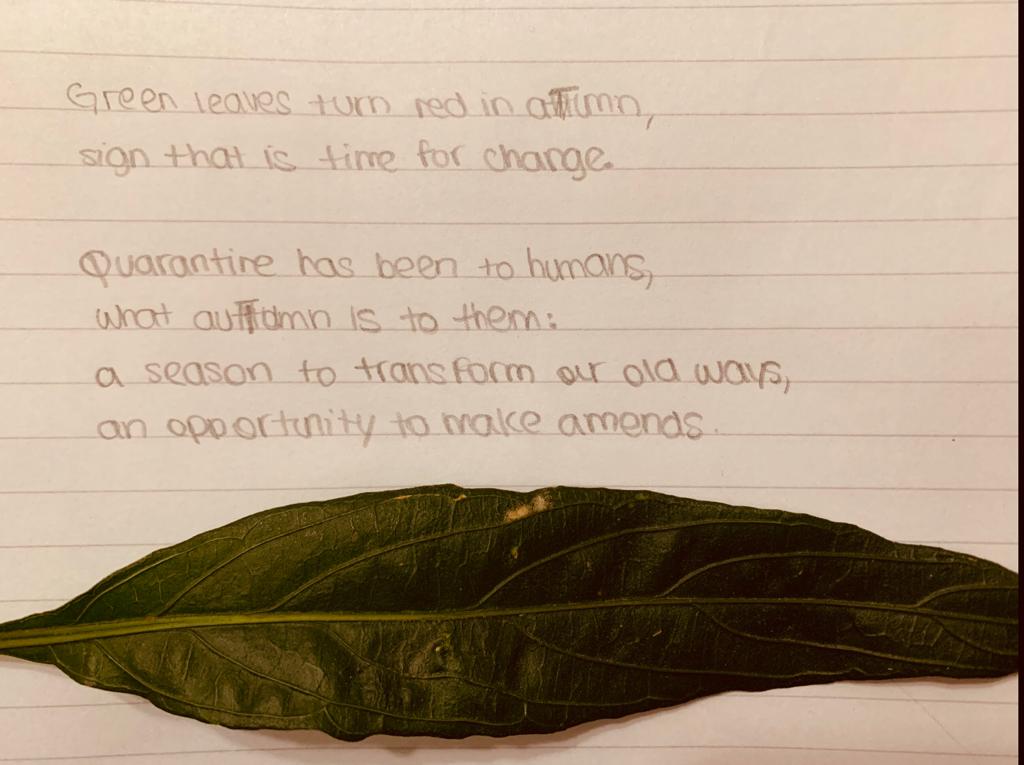 Green leaves turn red in atumn,
sign that is time for change.
Quarantine has been to humans,
what autumn is to them:
a season to transform our old ways,
an opportunity to make amends.